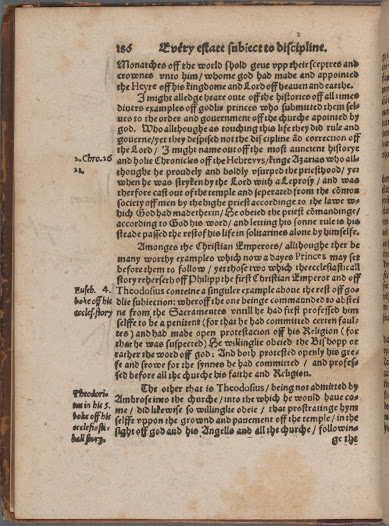 186 Every estate subiect to discipline.
Monarches off the world shold geue vpp their sceptres and
crownes vnto him / whome god had made and appointed
the Heyre off his kingdome and Lord off heauen and earthe.
I might alledge heare oute off the histories off all times
diuers examples off godlie princes who submitted them sel-
ues to the order and gouernment off the churche apointed by
god. Who allthoughe as touching this life they did rule and
gouerne / yet they despised not the discipline and correction off
the Lord / I might name out off the most auncient historye
2. Chro. 26 and holie Chronicles off the Hebrevvs / kinge Azarias who all-
21. thoughe he proudely and boldly vsurped the priesthood / yet
when he was stryken by the Lord with a Leprosy / and was
therfore cast out of the temple and seperated from the cōmon
society off men by the highe priest accordinge to the lawe w-
ich God had made therin / He obeied the priest cōmandinge /
according to God his word / and letting his sonne rule is his
steade passed the rest of his life in solitarines alone by himselfe.
Amonges the Christian Emperors / allthoughe ther be
many worthy examples which now a dayes Princes may set
before them to follow / yet those two which the ecclesiasticall
story reherseth off Philipp the first Christian Emperor and off
Euseb. 4. Theodosius conteine a singuler example aboue the rest off go-
boke off his dlie subiection: wheroff the one beinge commaunded to abstei
eccles. story ne from the Sacramentes vntill he had first professed him
selffe to be a penitent (for that he had committed certen faul-
tes) and had made open protestacion off his Religion (for
that he was suspected) He willinglie obeied the Bishopp or
rather the word off god: And both protested openly his gre-
fe and sorowe for the synnes he had committed / and profess-
sed before all the churche his faithe and Religion.
The other that is Theodosius / being not admitted by
Theodori- Ambrose into the churche / into the which he would haue co-
tus in his 5. me / did likewise so willinglie obeie / that prostratinge hym
boke off his selffe vppon the grownd and pauement off the temple / in the
ecclesiasti- sight off god and his Angells and all the churche / followin-
call story. ge the